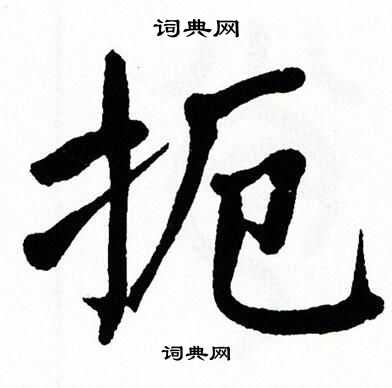 词典网
扼
词典网